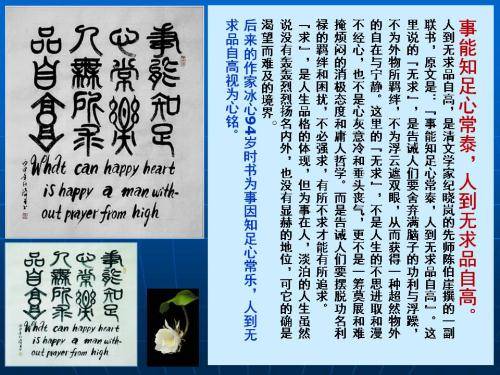 事能知足心常泰，人到无求品自高。
人到无求品自高，是清文学家纪晓岚的先师陈伯崖撰的一副
联书，原文是，「事能知足心常泰，人到无求品自高」。这
里说的「无求」，是告诫人们要舍弃满脑子的功利与浮躁，
不为外物所羁绊，不为浮云遮双眼，从而获得一种超然物外
的自在与宁静。这里的「无求」，不是人生的不思进取和漫
不经心，也不是心灰意冷和垂头丧气，更不是一筹莫展和难
掩烦闷的消极态度和庸人哲学。而是告诫人们要摆脱功名利
禄的羁绊和困扰，不必强求，有所不求才能有所追求。
「求」，是人生品格的体现，但为事在人，淡泊的人生虽然
说没有轰轰烈烈扬名内外，也没有显赫的地位，可它的确是
渴望而难及的境界。
后来的作家冰心94岁时书为事因知足心常乐，人到无
求品自高视为心铭。
事能知足
心常樂
人無所求
品自高
What can happy heart
is happy a man with-
out prayer from high
事能知足
心常樂
人無所求
品自高
What can happy heart
is happy a man with-
out prayer from high